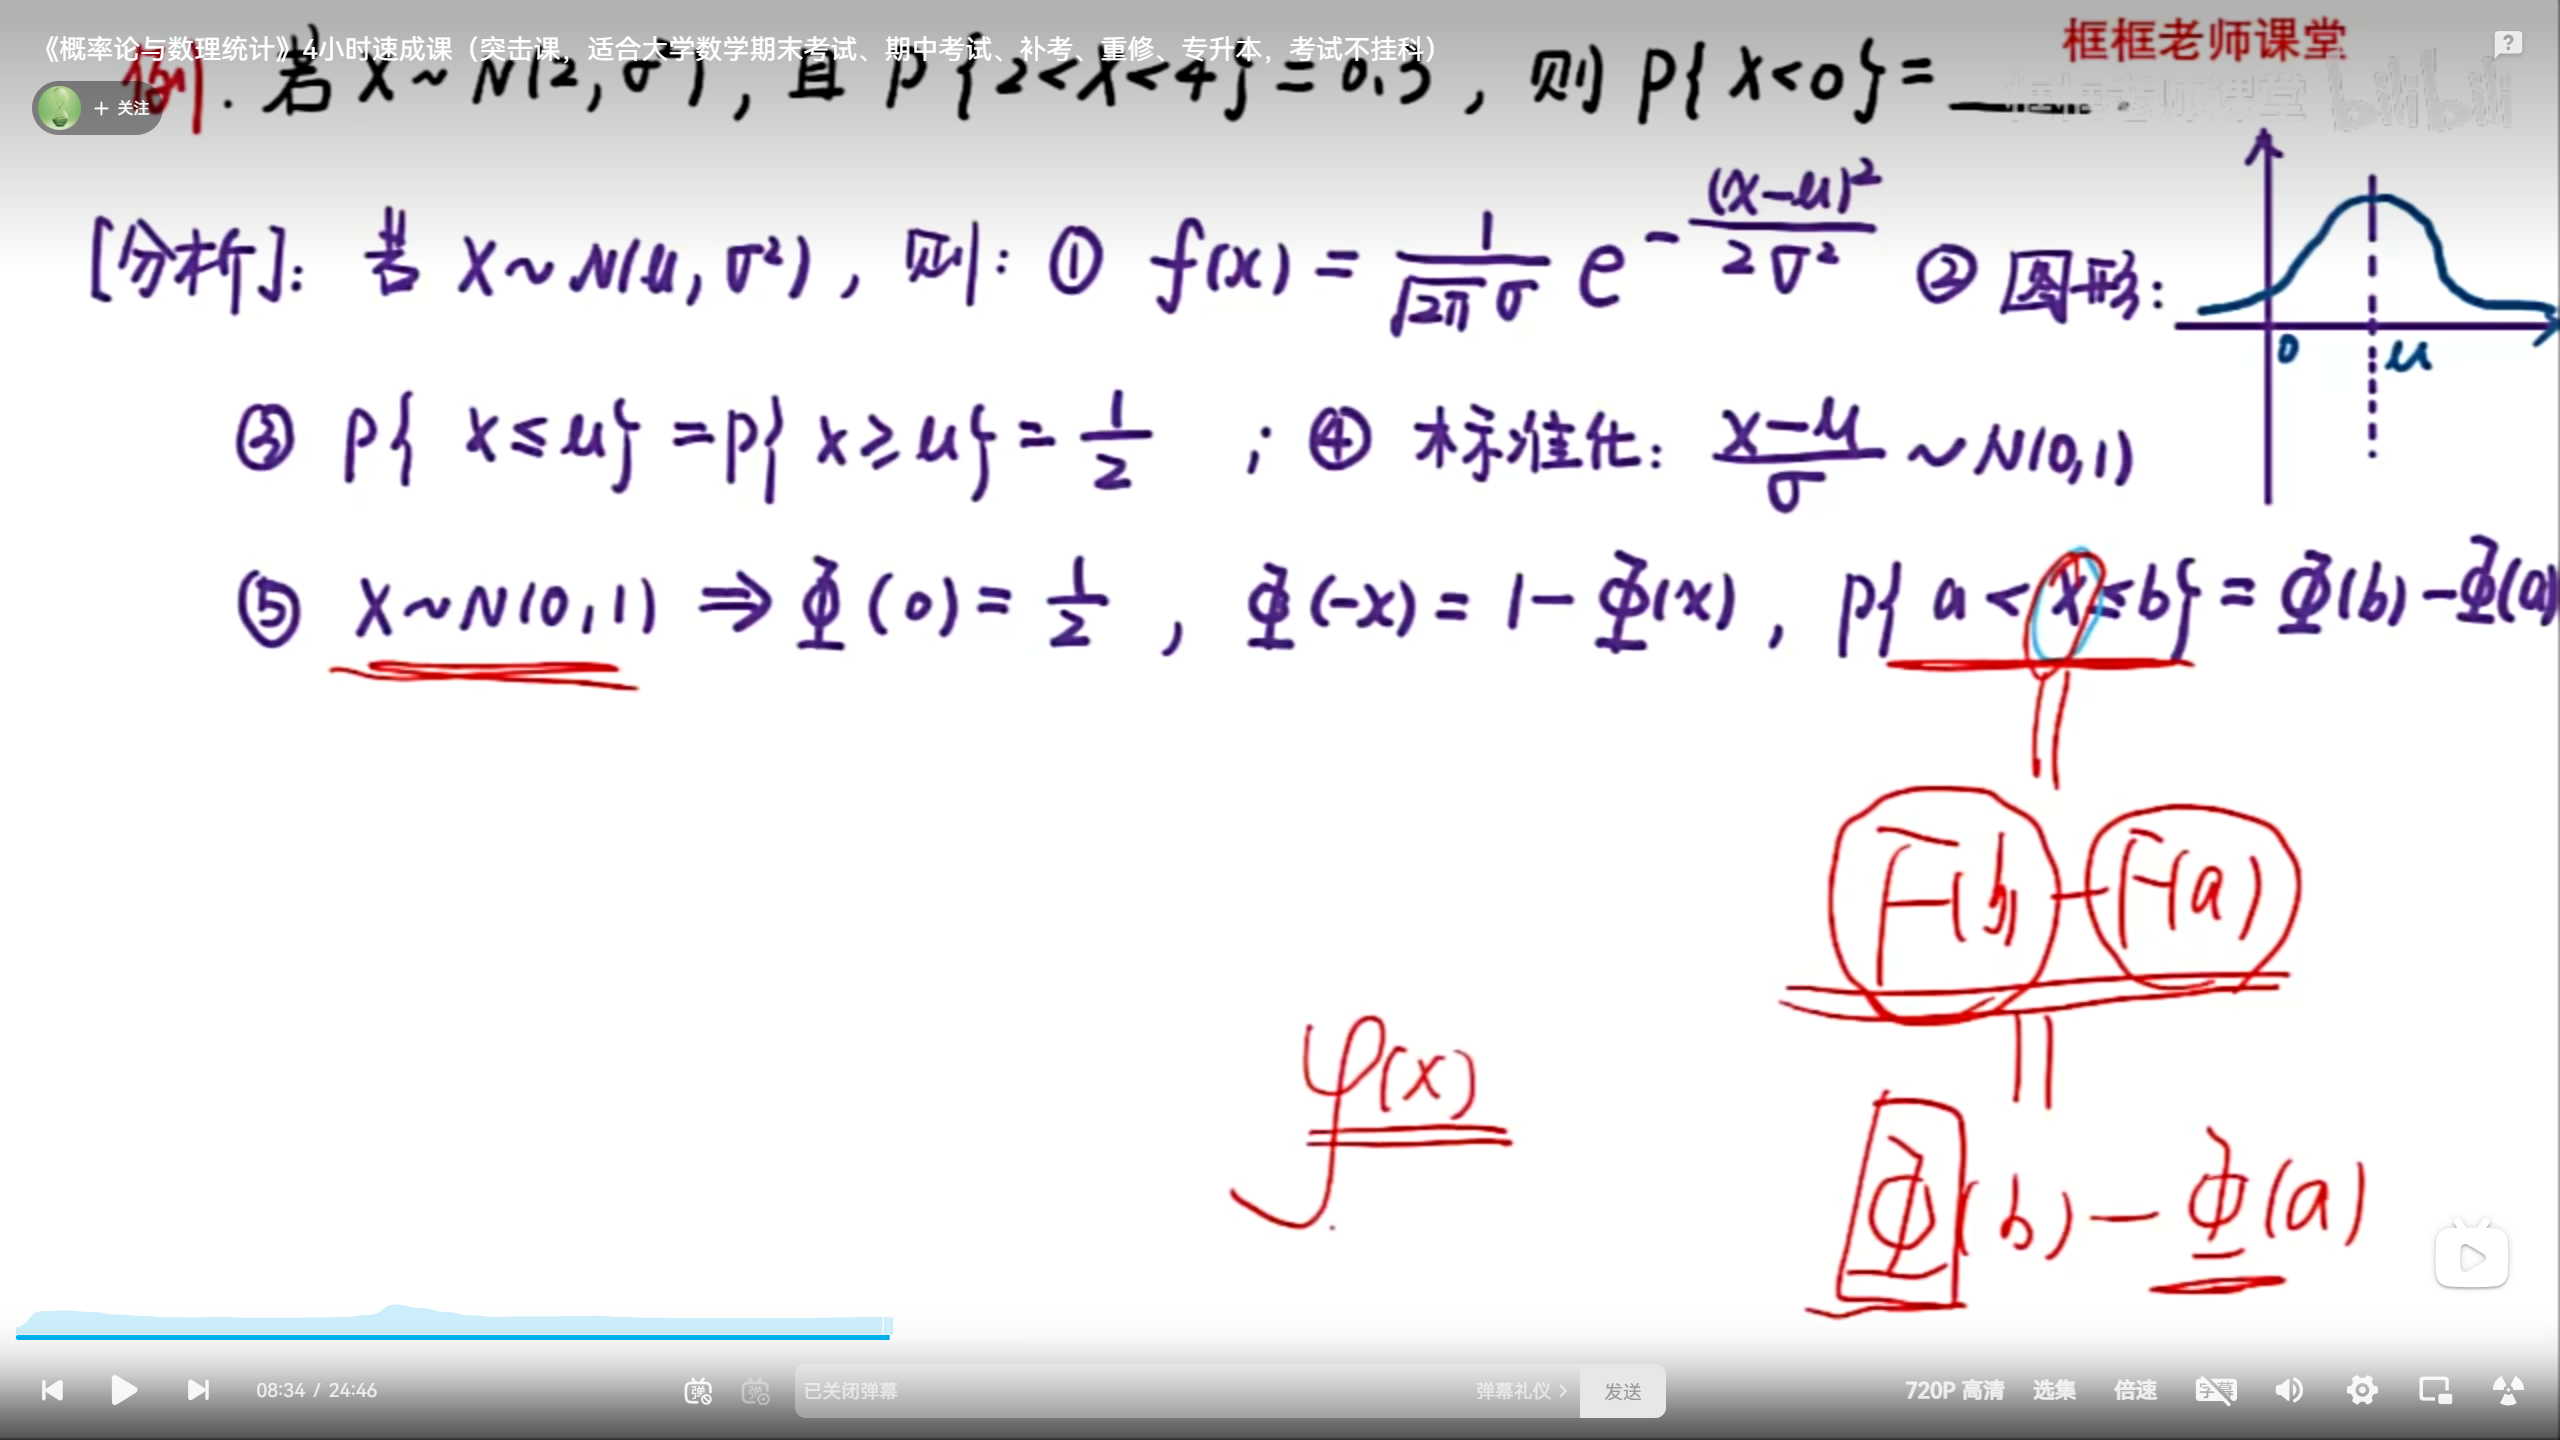 框框老师课堂
《概率论与数理统计》4小时速成课（突击课，适合大学数学期末考试、期中考试、补考、重修、专升本，考试不挂科）
例. 若 X~N(2,σ²), 且 P{2<X<4}=0.3, 则 P{X<0}=____.
+ 关注
框框老师课堂 bilibili
[分析]: 若 X~N(μ,σ²), 则: ① f(x) = 1/(√2π σ) e^{-(x-μ)²/(2σ²)} ② 图形:
0 μ
③ P{ X≤μ} =P{ X≥μ} = 1/2 ; ④ 标准化: (X-μ)/σ ~N(0,1)
⑤ X~N(0,1) ⇒ Φ(0)= 1/2 , Φ(-x)= 1-Φ(x), P{ a<X≤b} = Φ(b)-Φ(a)
F(b)-F(a)
φ(x)
Φ(b)-Φ(a)
08:34 / 24:46
弹
弹
已关闭弹幕
弹幕礼仪 >
发送
720P 高清
选集
倍速
字幕